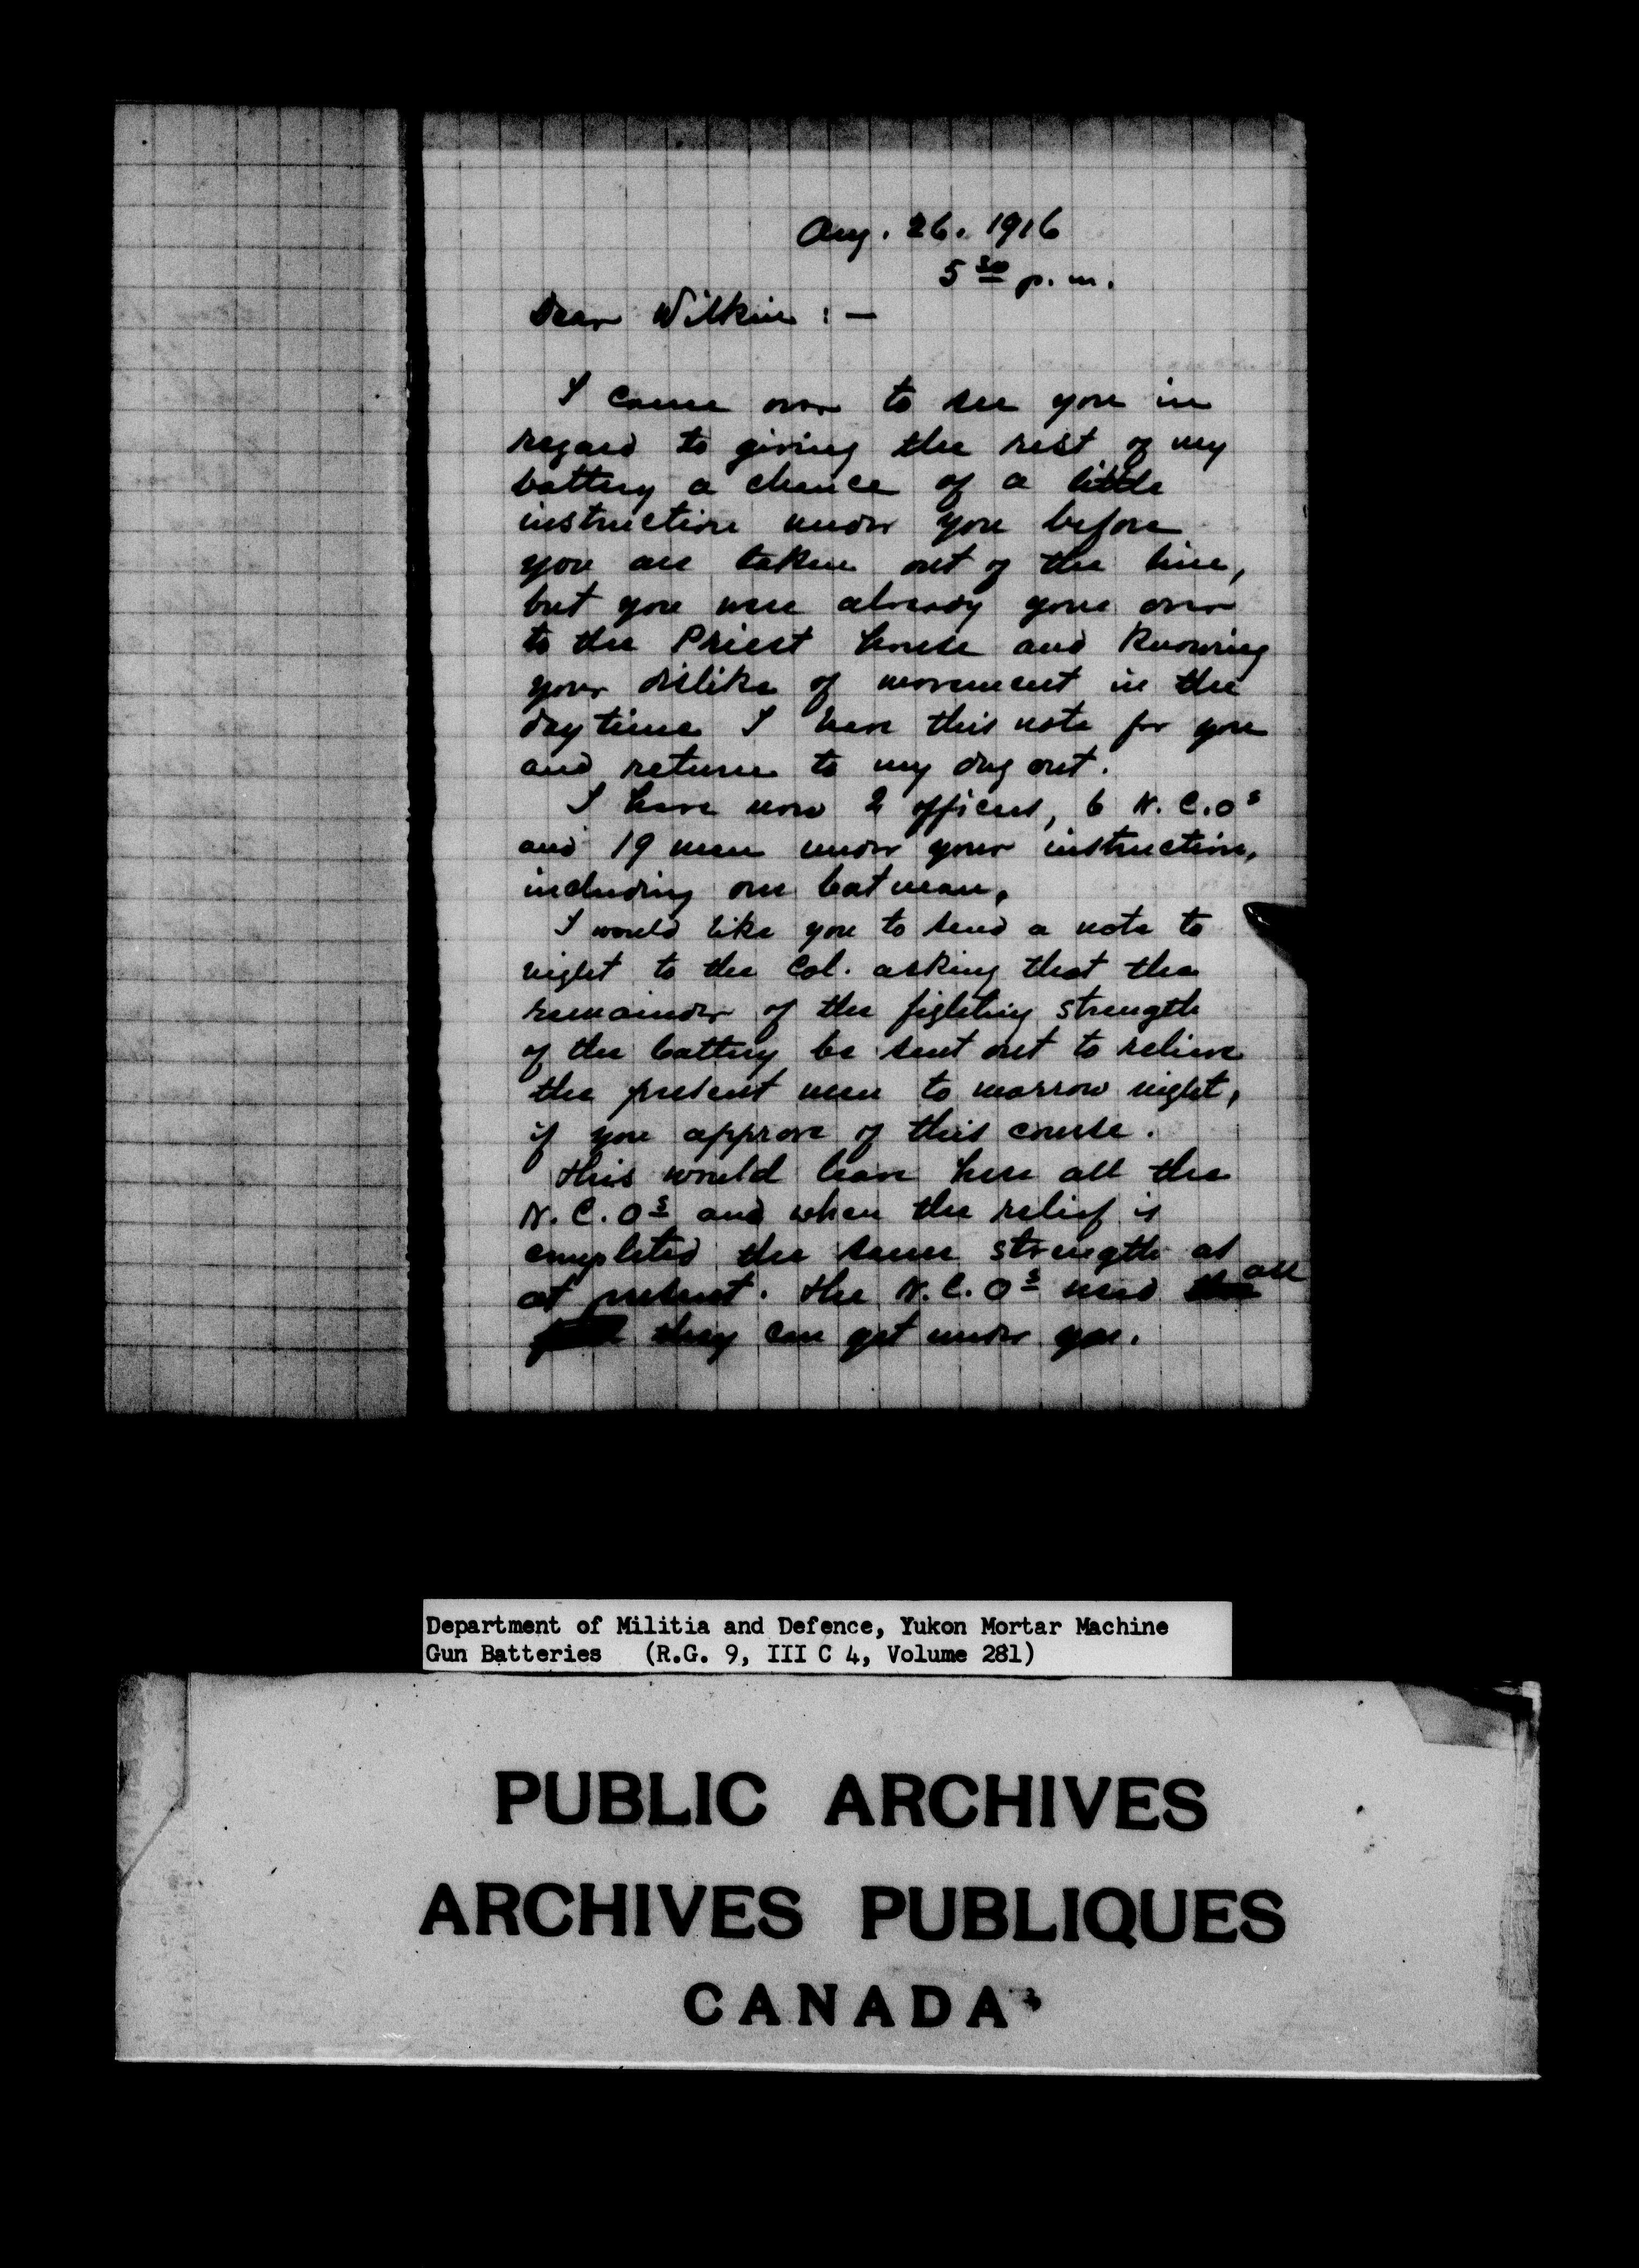 Aug. 26. 1916
5 30 p.m.
Dear Wilkin : —
I came over to see you in
regard to giving the rest of my
battery a chance of a little
instruction under you before
you are taken out of the line,
but you were already gone over
to the Priest house and knowing
your dislike of movement in the
daytime I leave this note for you
and return to my dug out.
I have now 2 officers, 6 N.C.Os
and 19 men under your instruction,
including one batman.
I would like you to send a note to
night to the Col. asking that the
remainder of the fighting strength
of the battery be sent out to relieve
the present men to morrow night,
if you approve of this course.
This would leave here all the
N.C.Os and when the relief is
completed the same strength as
at present. The N.C.Os need all
they can get under you.
Department of Militia and Defence, Yukon Mortar Machine
Gun Batteries (R.G. 9, III C 4, Volume 281)
PUBLIC ARCHIVES
ARCHIVES PUBLIQUES
CANADA